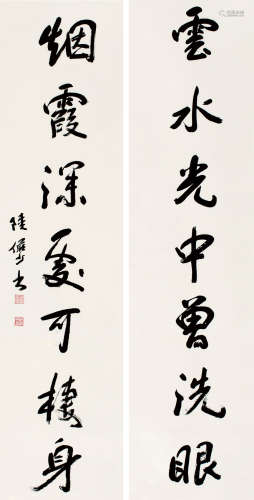 雲水光中曾洗眼
烟霞深處可棲身
陸儼少書